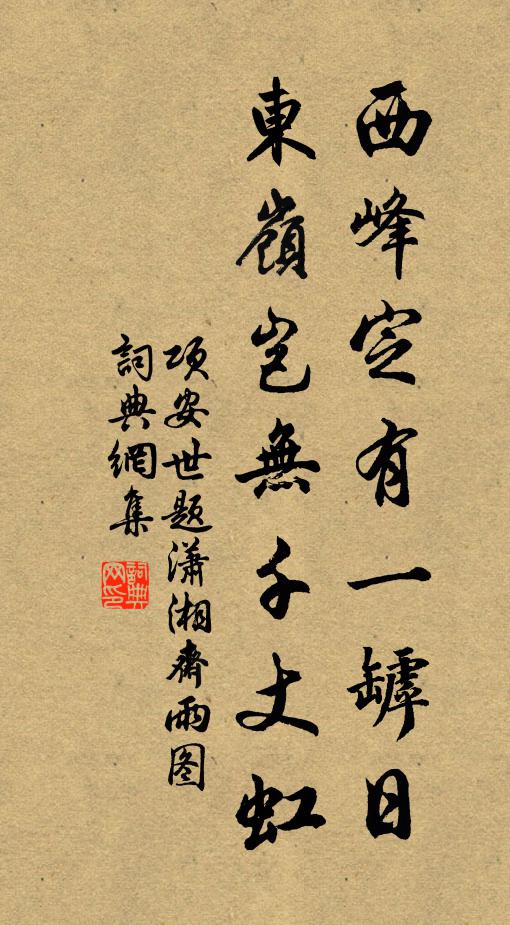 西峰定有一罅日
東嶺豈無千丈虹
项安世题潇湘齋雨图
詞典網集
詞典网印